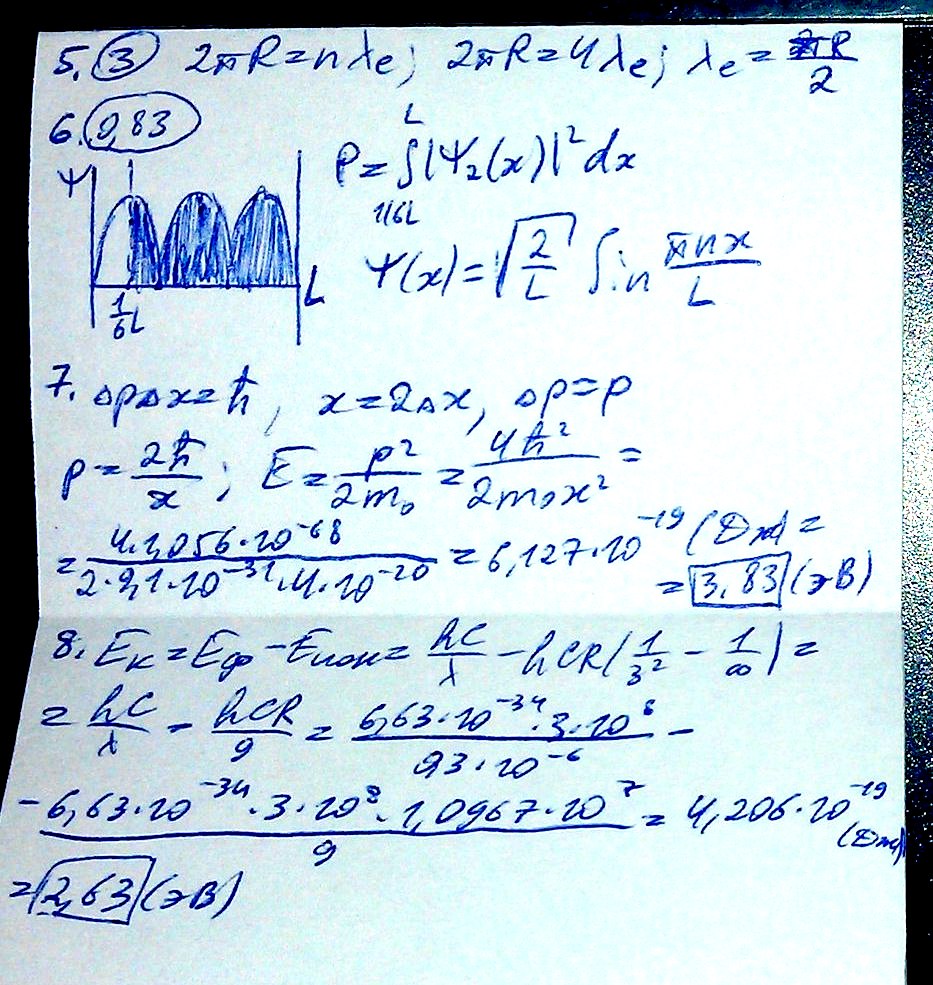 5. 3 2πR=nλe; 2πR=4λe; λe=πR/2
6. 0,83
Ψ P=∫|Ψ₂(x)|²dx
L
1/6L
Ψ(x)=√(2/L) Sin πnx/L
L
1/6L
7. ΔpΔx=ħ, x=2Δx, Δp=p
p=2ħ/x; E=p²/2m₀=4ħ²/2m₀x²=
=4·1,056·10⁻⁶⁸/2·9,1·10⁻³¹·4·10⁻²⁰=6,127·10⁻¹⁹(Дж)=
=3,83(эВ)
8. Eк=Eф-Eион=hC/λ-hCR(1/3²-1/∞)=
=hC/λ-hCR/9=6,63·10⁻³⁴·3·10⁸/0,3·10⁻⁶-
-6,63·10⁻³⁴·3·10⁸·1,0967·10⁷/9=4,206·10⁻¹⁹
(Дж)
=2,63(эВ)